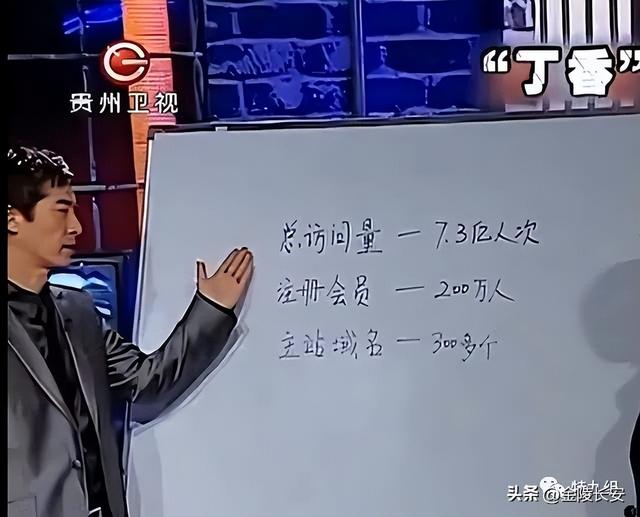 贵州卫视
“丁香”
总访问量 — 7.3亿人次
注册会员 — 200万人
主站域名 — 300多个
特九组
头条 @金陵长安